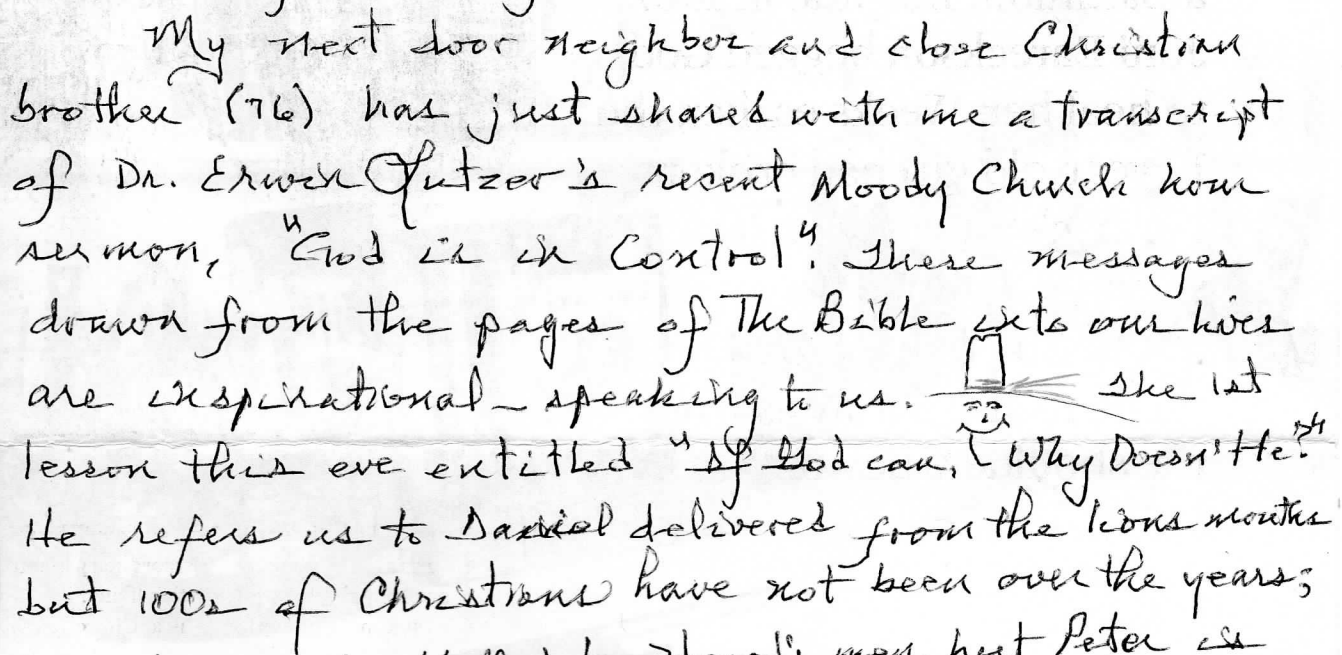 My next door neighbor and close Christian
brother (76) has just shared with me a transcript
of Dr. Erwin Lutzer's recent Moody Church hour
sermon, "God is in Control". These messages
drawn from the pages of The Bible into our lives
are inspirational - speaking to us. The 1st
lesson this eve entitled "If God can, Why Doesn't He?"
He refers us to Daniel delivered from the lions mouths
but 100s of Christians have not been over the years;
men but Peter is